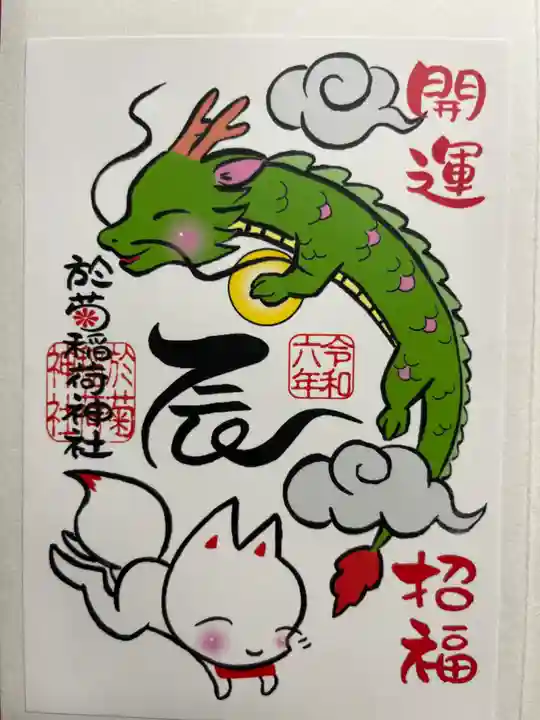 開運
招福
辰
令和
六年
於菊稲荷神社
於菊
神社